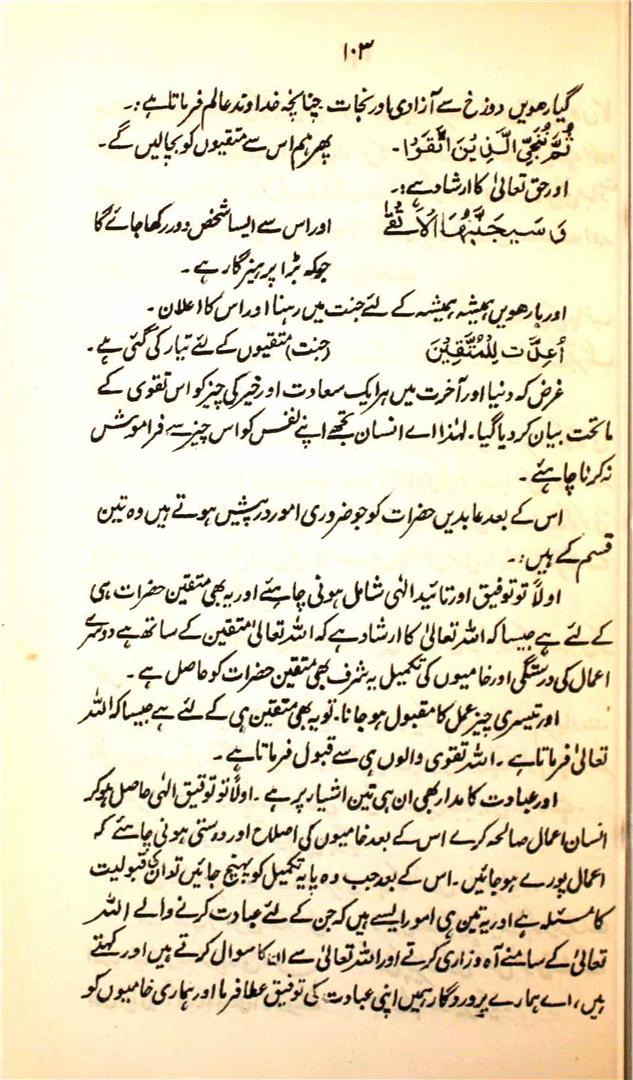 ۱۰۳
گیارھویں دوزخ سے آزادی اور نجات چنانچہ خداوند عالم فرماتا ہے:۔
ثُمَّ نُنَجِّی الَّذِیْنَ اتَّقَوْا۔ پھر ہم اس سے متقیوں کو بچالیں گے۔
اور حق تعالیٰ کا ارشاد ہے:۔
وَسَیُجَنَّبُهَا الْاَتْقَے اور اس سے ایسا شخص دور رکھا جائے گا
جو کہ بڑا پرہیزگار ہے۔
اور بارھویں ہمیشہ ہمیشہ کے لئے جنت میں رہنا اور اس کا اعلان۔
اُعِدَّت لِلْمُتَّقِیْنَ (جنت) متقیوں کے لئے تیار کی گئی ہے۔
غرض کہ دنیا اور آخرت میں ہر ایک سعادت اور خیر کی چیز کو اس تقوی کے
ماتحت بیان کر دیا گیا۔ لہٰذا اے انسان تجھے اپنے نفس کو اس چیز سے فراموش
نہ کرنا چاہئے۔
اس کے بعد عابدین حضرات کو جو ضروری امور درپیش ہوتے ہیں وہ تین
قسم کے ہیں:۔
اولاً تو توفیق اور تائید الٰہی شامل ہونی چاہئے اور یہ بھی متقین حضرات ہی
کے لئے ہے جیسا کہ اللہ تعالیٰ کا ارشاد ہے کہ اللہ تعالیٰ متقین کے ساتھ ہے دوسرے
اعمال کی درستگی اور خامیوں کی تکمیل یہ شرف بھی متقین حضرات کو حاصل ہے۔
اور تیسری چیز عمل کا مقبول ہو جانا۔ تو یہ بھی متقین ہی کے لئے ہے جیسا کہ اللہ
تعالیٰ فرماتا ہے۔ اللہ تقوی والوں ہی سے قبول فرماتا ہے۔
اور عبادت کا مدار بھی ان ہی تین اشیار پر ہے۔ اولاً تو توفیق الٰہی حاصل ہو کر
انسان اعمال صالحہ کرے اس کے بعد خامیوں کی اصلاح اور درستی ہونی چاہئے کہ
اعمال پورے ہو جائیں۔ اس کے بعد جب وہ پایہ تکمیل کو پہنچ جائیں تو ان کی قبولیت
کا مسئلہ ہے اور یہ تین ہی امور ایسے ہیں کہ جن کے لئے عبادت کرنے والے اللہ
تعالیٰ کے سامنے آہ و زاری کرتے اور اللہ تعالیٰ سے ان کا سوال کرتے ہیں اور کہتے
ہیں، اے ہمارے پروردگار ہمیں اپنی عبادت کی توفیق عطا فرما اور ہماری خامیوں کو